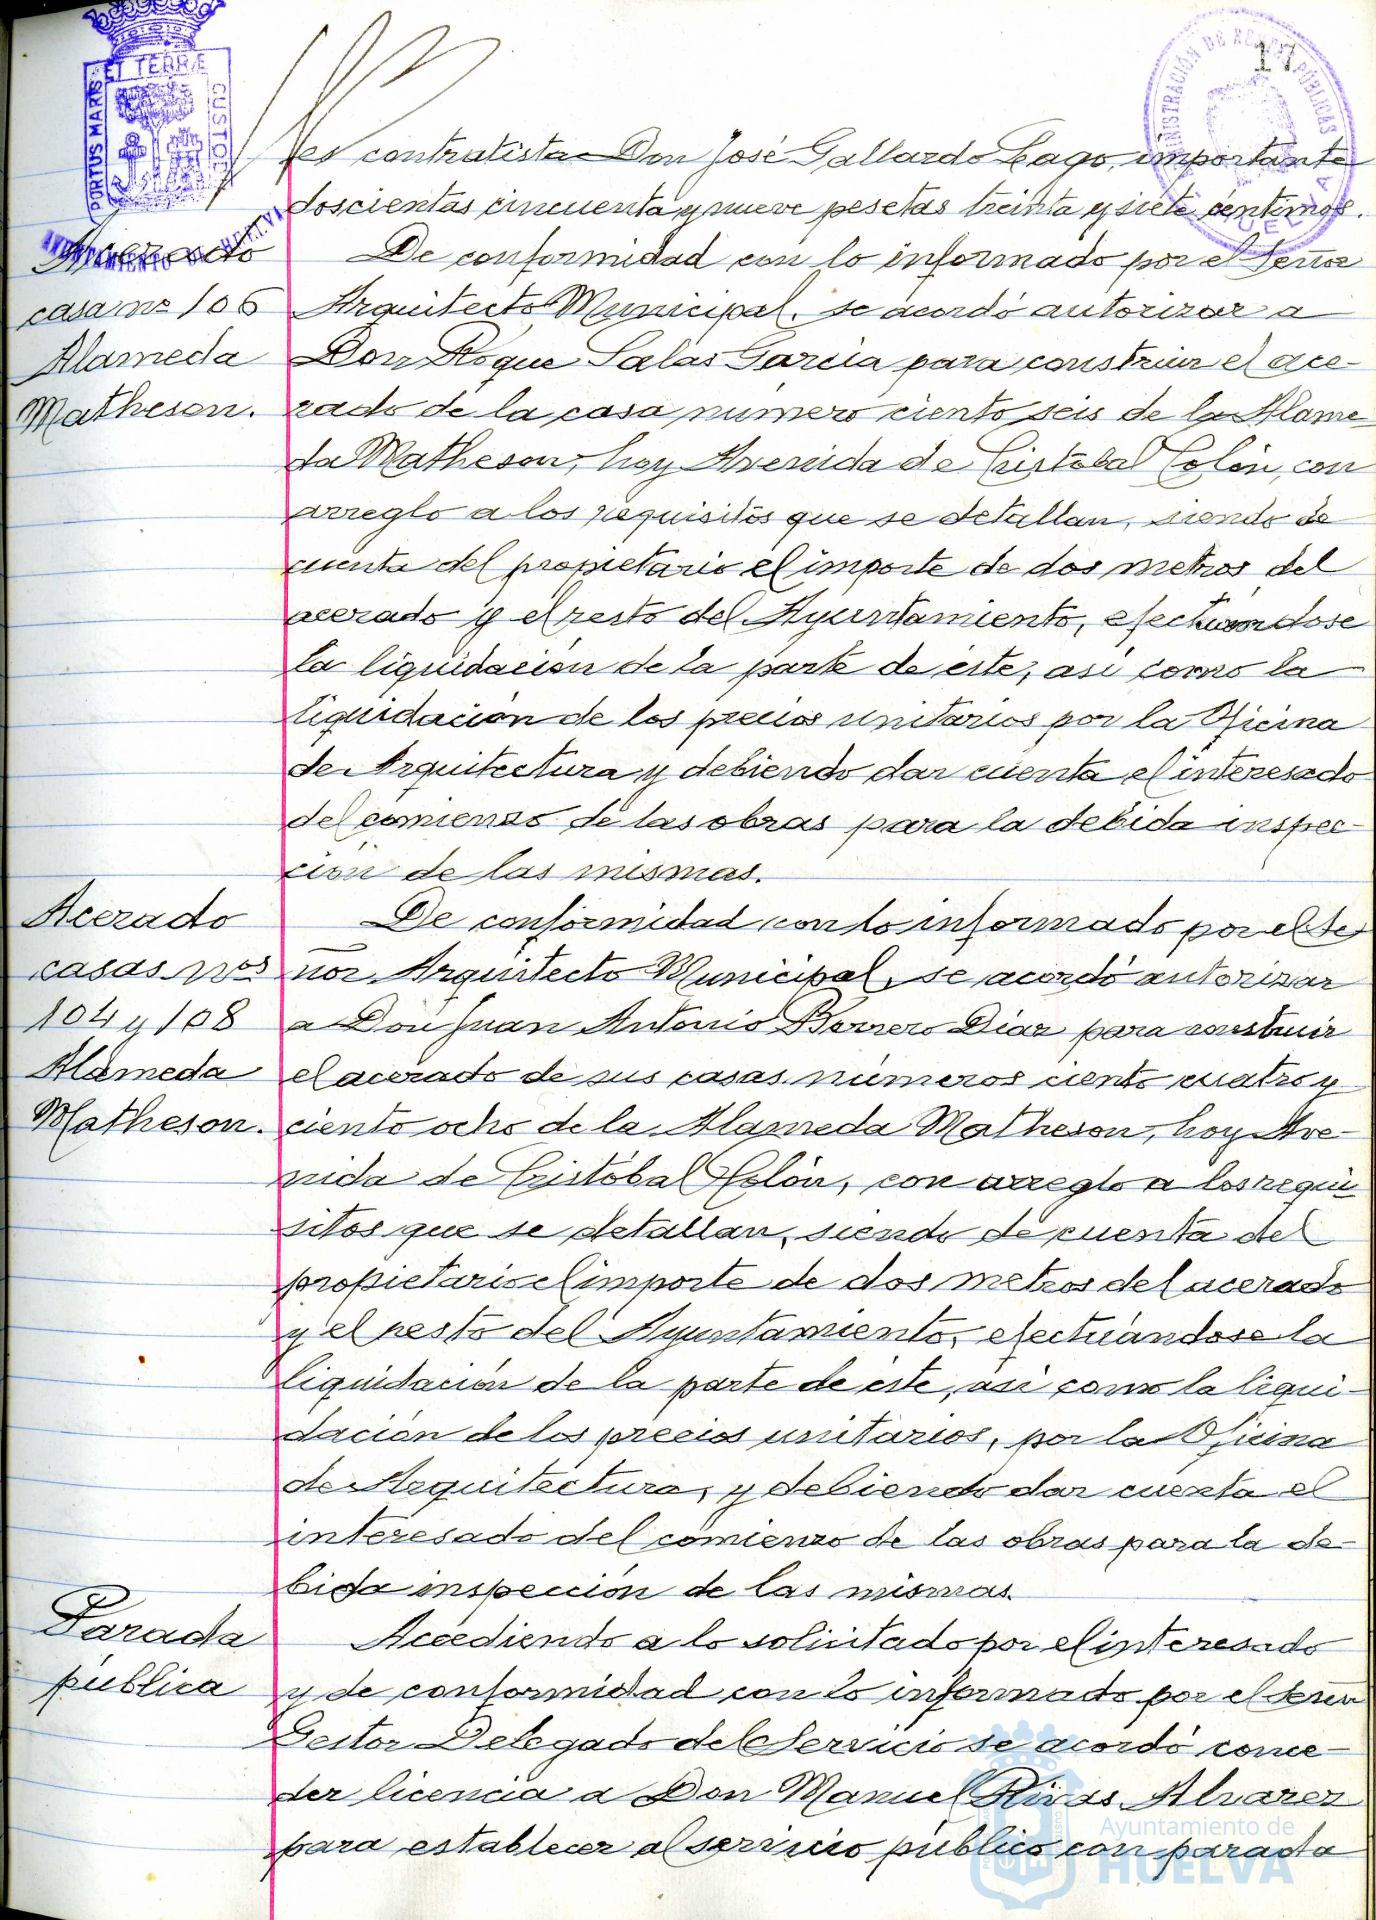 17
PORTUS MARIS ET TERRÆ CUSTOD
AYUNTAMIENTO DE HUELVA
ADMINISTRACIÓN DE RENTAS PÚBLICAS
HUELVA
es contratista Don José Gallardo Lago, importante
doscientas cincuenta y nueve pesetas treinta y siete céntimos.
Acerado
casa nº 106
Alameda
Matheson.
De conformidad con lo informado por el Señor
Arquitecto Municipal, se acordó autorizar a
Don Roque Salas García para construir el ace-
rado de la casa número ciento seis de la Alame-
da Matheson, hoy Avenida de Cristóbal Colón, con
arreglo a los requisitos que se detallan, siendo de
cuenta del propietario el importe de dos metros del
acerado y el resto del Ayuntamiento, efectuandose
la liquidación de la parte de éste, así como la
liquidación de los precios unitarios por la Oficina
de Arquitectura y debiendo dar cuenta el interesado
del comienzo de las obras para la debida inspec-
ción de las mismas.
Acerado
casas nos
104 y 108
Alameda
Matheson.
De conformidad con lo informado por el Se-
ñor Arquitecto Municipal, se acordó autorizar
a Don Juan Antonio Borrero Díaz para construir
el acerado de sus casas números ciento cuatro y
ciento ocho de la Alameda Matheson, hoy Ave-
nida de Cristóbal Colón, con arreglo a los requi-
sitos que se detallan, siendo de cuenta del
propietario el importe de dos metros del acerado
y el resto del Ayuntamiento, efectuándose la
liquidación de la parte de éste, así como la liqui-
dación de los precios unitarios, por la Oficina
de Arquitectura, y debiendo dar cuenta el
interesado del comienzo de las obras para la de-
bida inspección de las mismas.
Parada
pública
Accediendo a lo solicitado por el interesado
y de conformidad con lo informado por el Señor
Gestor Delegado del Servicio se acordó conce-
der licencia a Don Manuel Rivas Alvarez
para establecer al servicio público con parada
Ayuntamiento de
HUELVA